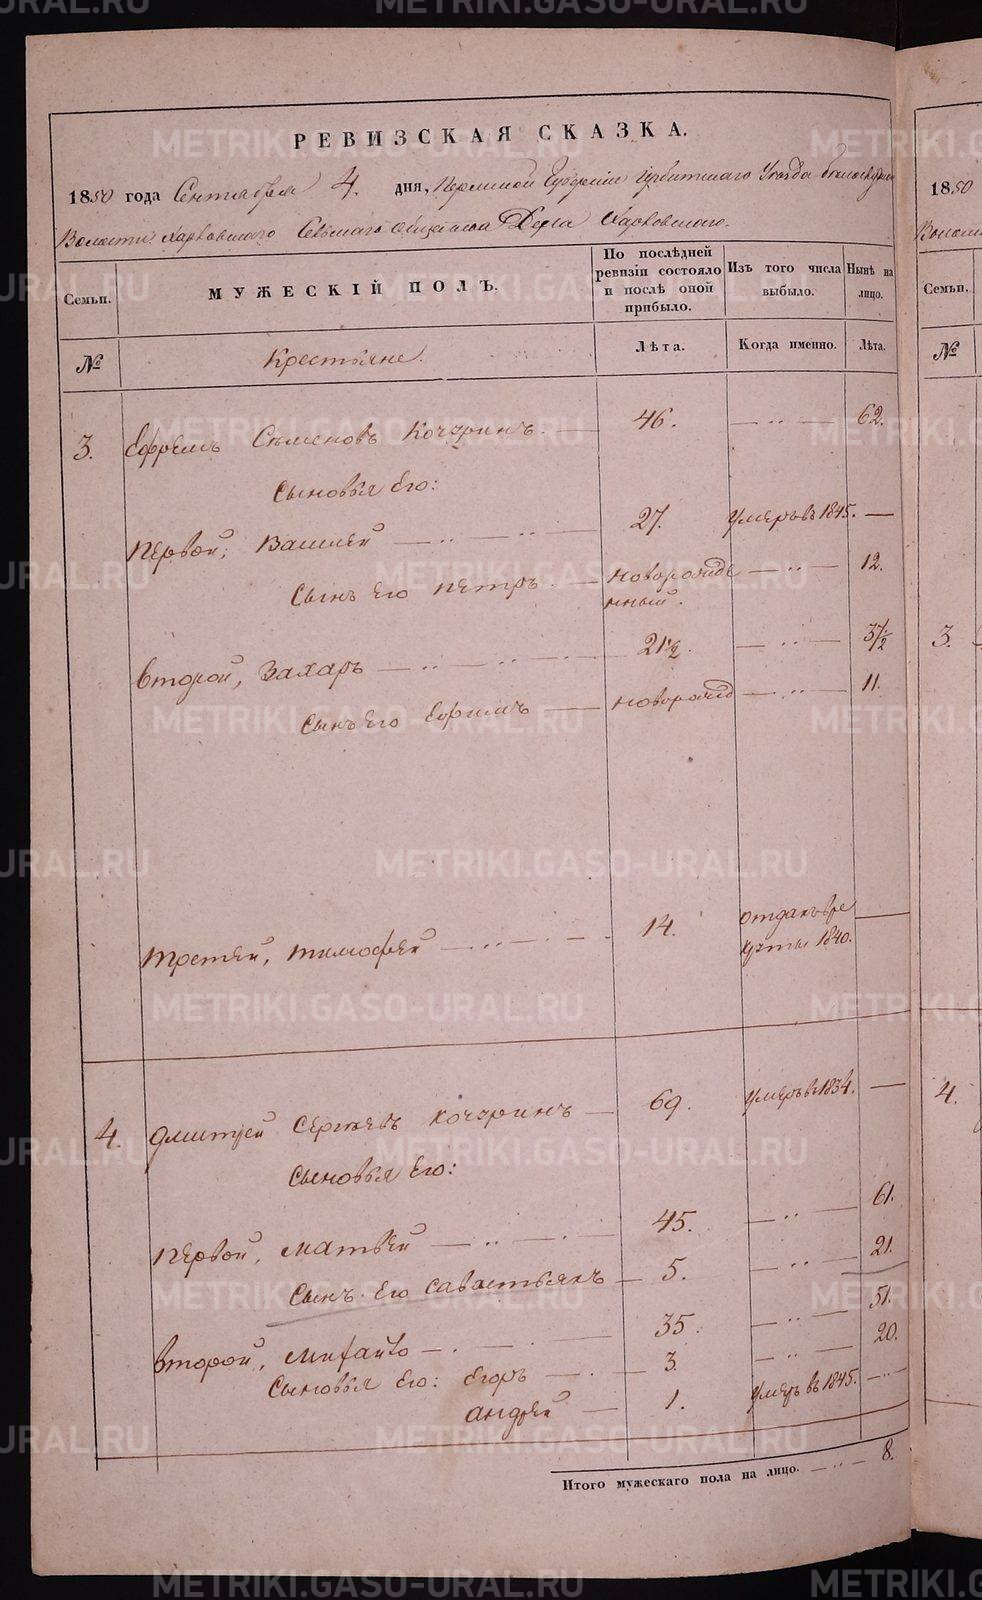 METRIKI.GASO-URAL.RU
РЕВИЗСКАЯ СКАЗКА.
1850 года Сентября 4. дня, Пермской Губерніи Ирбитскаго Уѣзда
Волости Харковскаго Сельскаго общества Дер Харковскаго.
Семьи.
МУЖЕСКІЙ ПОЛЪ.
По послѣдней ревизіи состояло и послѣ оной прибыло.
Изъ того числа выбыло.
Нынѣ на лицо.
№
Крестьяне.
Лѣта.
Когда именно.
Лѣта.
3. Ефремъ Семеновъ Кочуринъ 46. — " — 62.
Сыновья Его:
Первой, Василей — " — " — 27. Умеръ въ 1845. —
Сынъ Его Петръ — Новорожде — " — 12.
нный.
Второй, Захаръ — " — " — 21 1/2. — " — 37 1/2
Сынъ Его Ефимъ — Новорожд — " — 11.
Третей, Тимофей — " — " — 14. отданъ в ре —
круты 1840.
4. Дмитрей Сергѣевъ Кочуринъ — 69. Умеръ в 1834. —
Сыновья Его:
Первой, Матвей — " — 45. — " — 61.
Сынъ Его Савастьянъ — 5. — " — 21.
Второй, Михайло — 35. — " — 51.
Сыновья Его: Егоръ — 3. — " — 20.
Андрей — 1. Умеръ въ 1845. — " —
Итого мужескаго пола на лицо. — " — 8.
1850
Волости
Семьи.
№
3.
4.